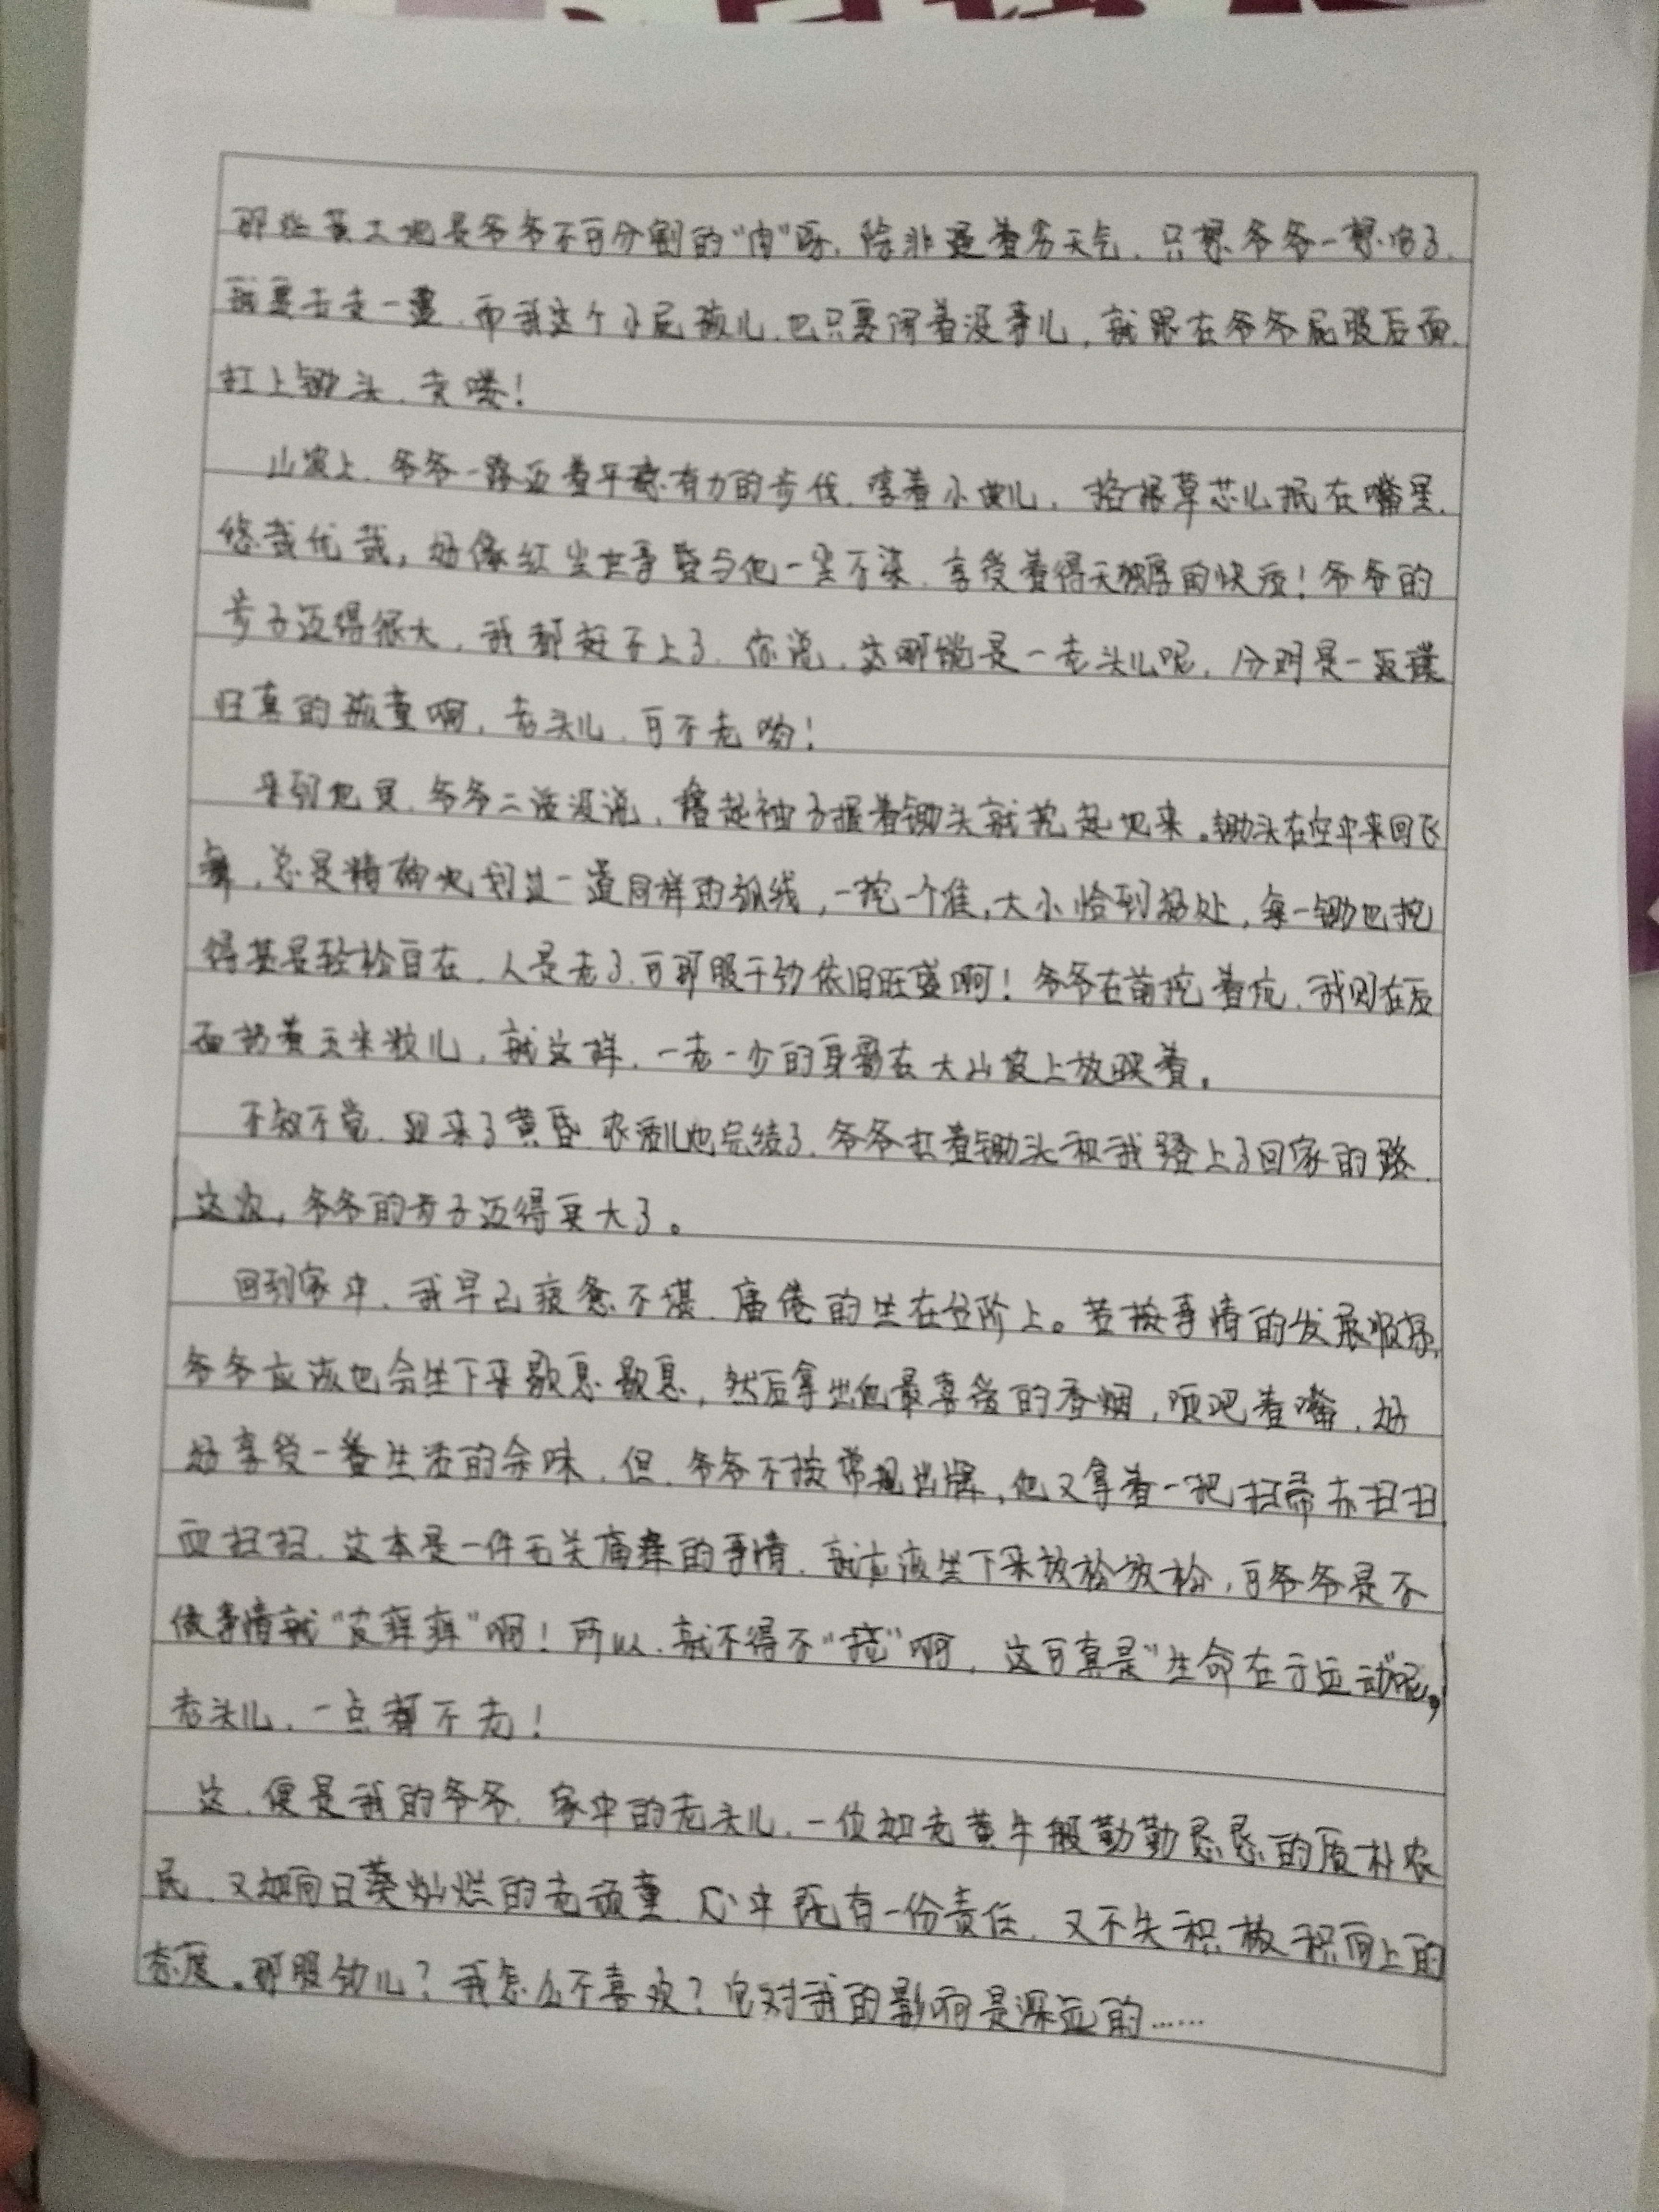 那些黄土地是爷爷不可分割的“肉”呀，除非逢着劣天气，只要爷爷一想
就要去走一遭，而我这个小屁孩儿，也只要闲着没事儿，就跟在爷爷屁股后面，
扛上锄头，走喽！
山坡上，爷爷一路迈着平稳有力的步伐，哼着小曲儿，掐根草芯儿抿在嘴里，
悠哉优哉，好像红尘世事暂与他一尘不染，享受着得天独厚的快活！爷爷的
步子迈得很大，我都赶不上了，你说，这哪能是一老头儿呢，分明是一返璞
归真的孩童啊，老头儿，可不老哟！
来到地里，爷爷二话没说，撸起袖子握着锄头就挖起地来。锄头在空中来回飞
舞，总是精确地划过一道同样的弧线，一挖一个准，大小恰到好处，每一锄也挖
得甚是轻松自在，人是老了，可那股干劲依旧旺盛啊！爷爷在前挖着坑，我则在后
面扔着玉米粒儿，就这样，一老一少的身影在大山坡上放映着。
不知不觉，迎来了黄昏，农活儿也完结了，爷爷扛着锄头和我踏上了回家的路，
这次，爷爷的步子迈得更大了。
回到家中，我早已疲惫不堪，慵倦的坐在台阶上。若按事情的发展顺序，
爷爷应该也会坐下来歇息歇息，然后拿出他最喜爱的香烟，咂吧着嘴，好
好享受一番生活的余味，但，爷爷不按常规出牌，他又拿着一把扫帚东扫扫
西扫扫，这本是一件无关痛痒的事情，就应该坐下来放松放松，可爷爷是不
做事情就“皮痒痒”啊！所以，就不得不“挠”啊，这可真是“生命在于运动”呢，
老头儿，一点都不老！
这，便是我的爷爷，家中的老头儿，一位如老黄牛般勤勤恳恳的质朴农
民，又如向日葵灿烂的老顽童，心中既有一份责任，又不失积极积向上的
态度。那股劲儿？我怎么不喜欢？它对我的影响是深远的……